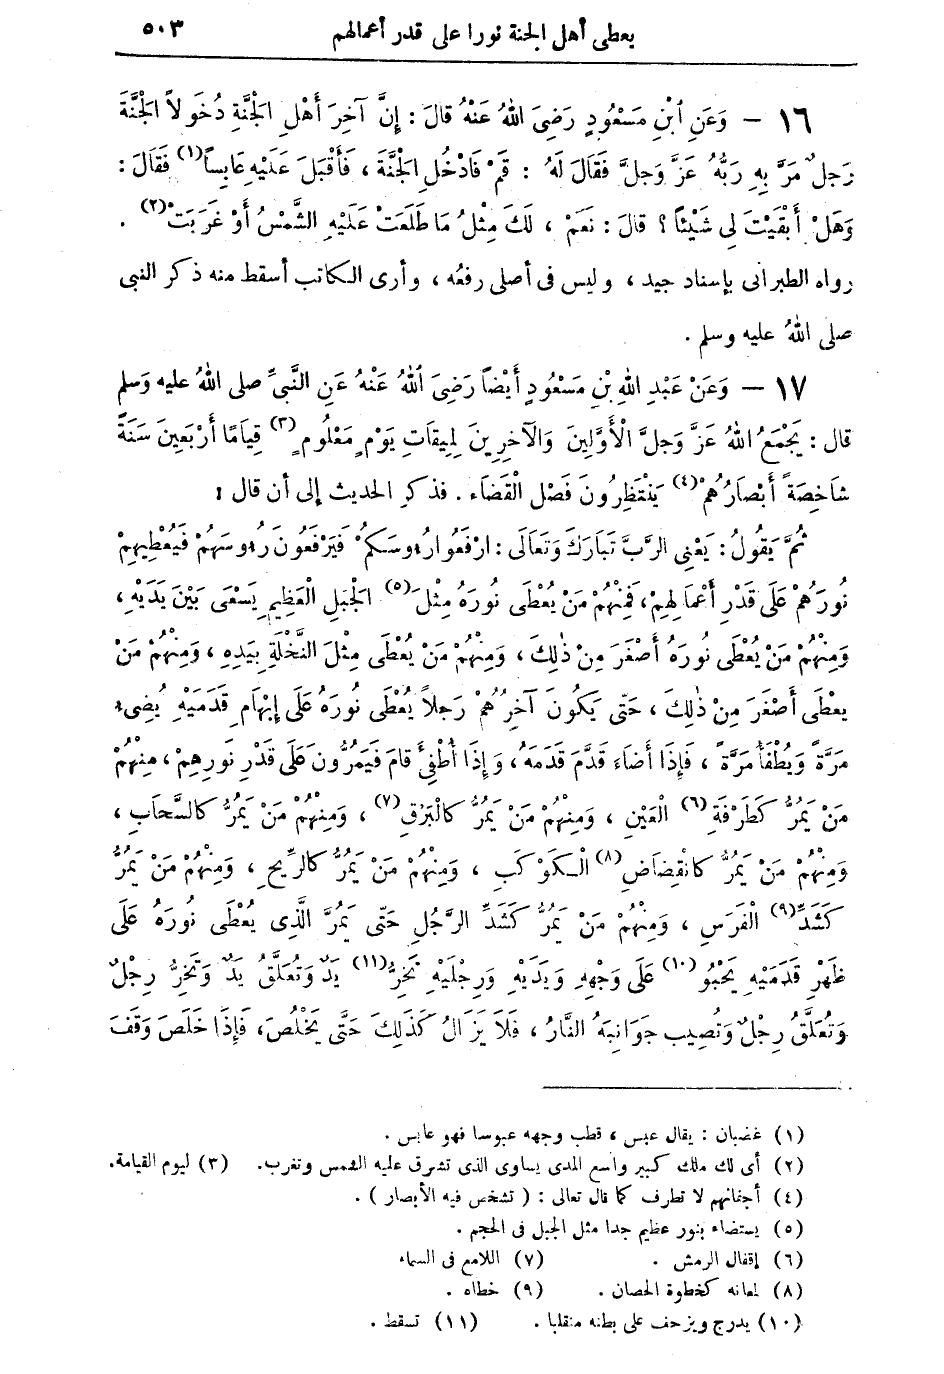 يعطى أهل الجنة نورا على قدر أعمالهم ٥٠٣
١٦ — وَعَنِ ٱبْنِ مَسْعُودٍ رَضِىَ ٱللهُ عَنْهُ قالَ : إِنَّ آخِرَ أَهْلِ الْجَنَّةِ دُخُولاً الْجَنَّةَ
رَجلٌ مَرَّ بِهِ رَبُّهُ عَزَّ وَجلَّ فَقَالَ لَهُ : قُمْ فَادْخُلِ الْجَنَّةَ ، فَأَقْبَلَ عَلَيْهِ عَابِساً (١) فَقَالَ :
وَهَلْ أَبْقَيْتَ لِى شَيْئاً ؟ قالَ : نَعَمْ ، لَكَ مِثْلُ مَا طَلَعَتْ عَلَيْهِ الشَّمْسُ أَوْ غَرَبَتْ (٢) .
رواه الطبرانى بإسناد جيد ، وليس فى أصلى رفعُه ، وأرى الكاتب أسقط منه ذكر النبى
صلى اللهُ عليه وسلم .
١٧ — وَعَنْ عَبْدِ اللهِ بْنِ مَسْعُودٍ أَيْضاً رَضِىَ اللهُ عَنْهُ عَنِ النَّبِىِّ صلى اللهُ عليه وَسلم
قال : يَجْمَعُ اللهُ عَزَّ وَجلَّ الْأَوَّلِينَ وَالْآخِرِينَ لِمِيقَاتِ يَوْمٍ مَعْلُومٍ (٣) قِيَامًا أَرْبَعِينَ سَنَةً
شاَخِصَةً أَبْصَارُهُمْ (٤) يَنْتَظِرُونَ فَصْلَ الْقَضَاءِ . فذكر الحديث إلى أن قال :
ثُمَّ يَقُولُ : يَعْنِى الرَّبَّ تَبَارَكَ وَتَعَالَى : ارْفَعُوا رُءوسَكُمْ فَيَرْفَعُونَ رُءوسَهُمْ فَيُعْطِيهِمْ
نُورَهُمْ عَلَى قَدْرِ أَعْمَالِهِمْ ، فَمِنْهُمْ مَنْ يُعْطَى نُورَهُ مِثْلَ (٥) الْجَبَلِ الْعَظِيمِ يَسْعَى بَيْنَ يَدَيْهِ ،
وَمِنْهُمْ مَنْ يُعْطَى نُورَهُ أَصْغَرَ مِنْ ذٰلِكَ ، وَمِنْهُمْ مَنْ يُعْطَى مِثْلَ النَّخْلَةِ بِيَدِهِ ، وَمِنْهُمْ مَنْ
يعْطَى أَصْغَرَ مِنْ ذٰلِكَ ، حَتَّى يَكُونَ آخِرُهُمْ رَجلاً يُعْطَى نُورَهُ عَلَى إِبْهَامِ قَدَمَيْهِ يُضِىء
مَرَّةً وَيُطْفَأُ مَرَّةً ، فَإِذَا أَضَاءَ قَدَّمَ قَدَمَهُ ، وَإِذَا أُطْفِئَ قامَ فَيَمُرُّونَ عَلَى قَدْرِ نُورِهِمْ ، مِنْهُمْ
مَنْ يَمُرُّ كَطَرْفَةِ (٦) الْعَيْنِ ، وَمِنْهُمْ مَنْ يَمُرُّ كالْبَرْقِ (٧) ، وَمِنْهُمْ مَنْ يَمُرُّ كالسَّحَابِ ،
وَمِنْهُمْ مَنْ يَمُرُّ كانْقِضَاضِ (٨) الْكَوْكَبِ ، وَمِنْهُمْ مَنْ يَمُرُّ كالرِّيحِ ، وَمِنْهُمْ مَنْ يَمُرُّ
كَشَدِّ (٩) الْفَرَسِ ، وَمِنْهُمْ مَنْ يَمُرُّ كَشَدِّ الرَّجُلِ حَتَّى يَمُرَّ الَّذِى يُعْطَى نُورَهُ عَلَى
ظَهْرِ قَدَمَيْهِ يَحْبُو (١٠) عَلَى وَجْهِهِ وَيَدَيْهِ وَرِجْلَيْهِ تَخِرُّ (١١) يَدٌ وَتُعَلَّقُ يَدٌ وَتَخِرُّ رِجْلٌ
وَتُعَلَّقُ رِجْلٌ وَتُصِيب جوَانِبَهُ النَّارُ ، فَلاَ يَزَالُ كَذٰلِكَ حَتَّى يَخْلُصَ ، فَإِذَا خَلَصَ وَقَفَ
(١) غضبان : يقال عبس ، قطب وجهه عبوسا فهو عابس .
(٢) أى لك ملك كبير واسع المدى يساوى الذى تشرق عليه الشمس وتغرب . (٣) ليوم القيامة .
(٤) أجفانهم لا تطرف كما قال تعالى : ( تشخص فيه الأبصار ) .
(٥) يستضاء بنور عظيم جدا مثل الجبل فى الحجم .
(٦) إقفال الرمش . (٧) اللامع فى السماء
(٨) لمعانه كخطوة الحصان . (٩) خطاه .
(١٠) يدرج ويزحف على بطنه منقلبا . (١١) تسقط .